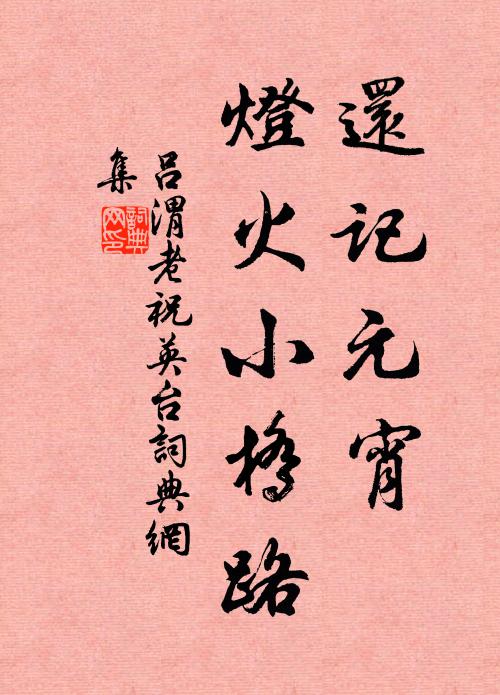 還記元宵
燈火小橋路
吕渭老祝英台詞典網
集
詞典网印